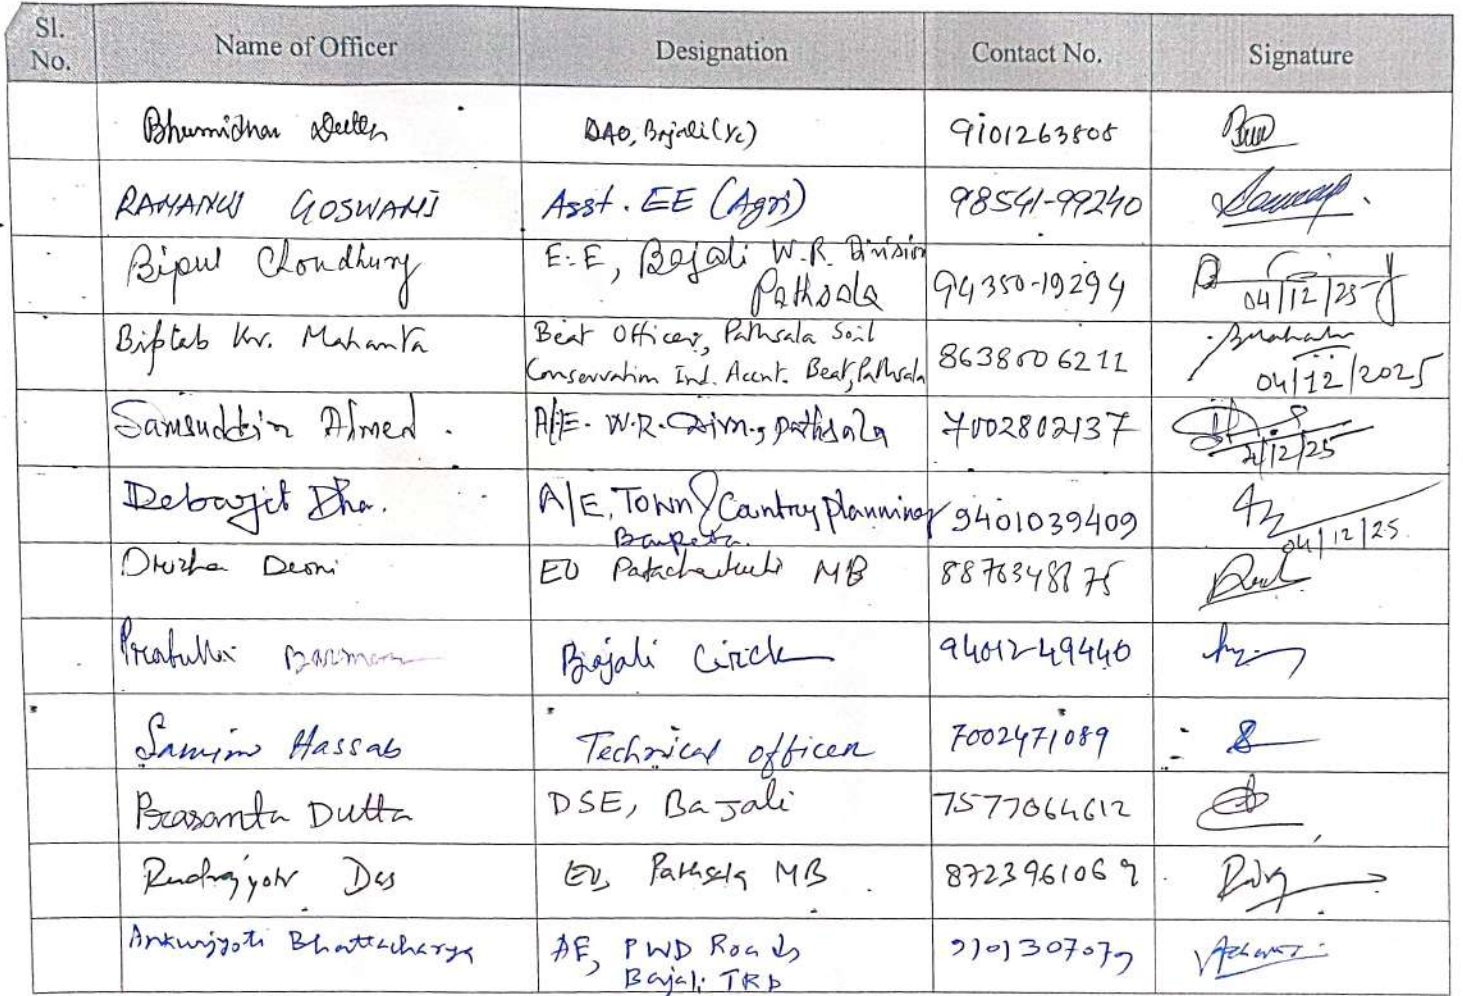 Sl. No. Name of Officer Designation Contact No. Signature
Bhumidhar DAO, Bajali (I/c) 9101263805
RAMANUJ GOSWAMI Asst. EE (Agri) 98541-99240
Bipul Choudhury E.E, Bajali W.R. Division Pathsala 94350-19294 04/12/25
Biplab Kr. Mahanta Beat Officer, Pathsala Soil Conservation Ind. Accnt. Beat, Pathsala 8638006211 04/12/2025
Samsuddin Ahmed. A/E. W.R. Divn., pathsala 7002802137 4/12/25
Debajit A/E, Town & Country planning Barpeta. 9401039409 04/12/25
Deori EO MB
Barman Bajali Circle 94012-49440
Samim Hassab Technical officer 7002471089
Prasanta Dutta DSE, Bajali 7577064612
Rudrajyoti Das EO, Pathsala MB 8723961069
Ankurjyoti Bhattacharya AE, PWD Roads Bajali TRD 9101307079